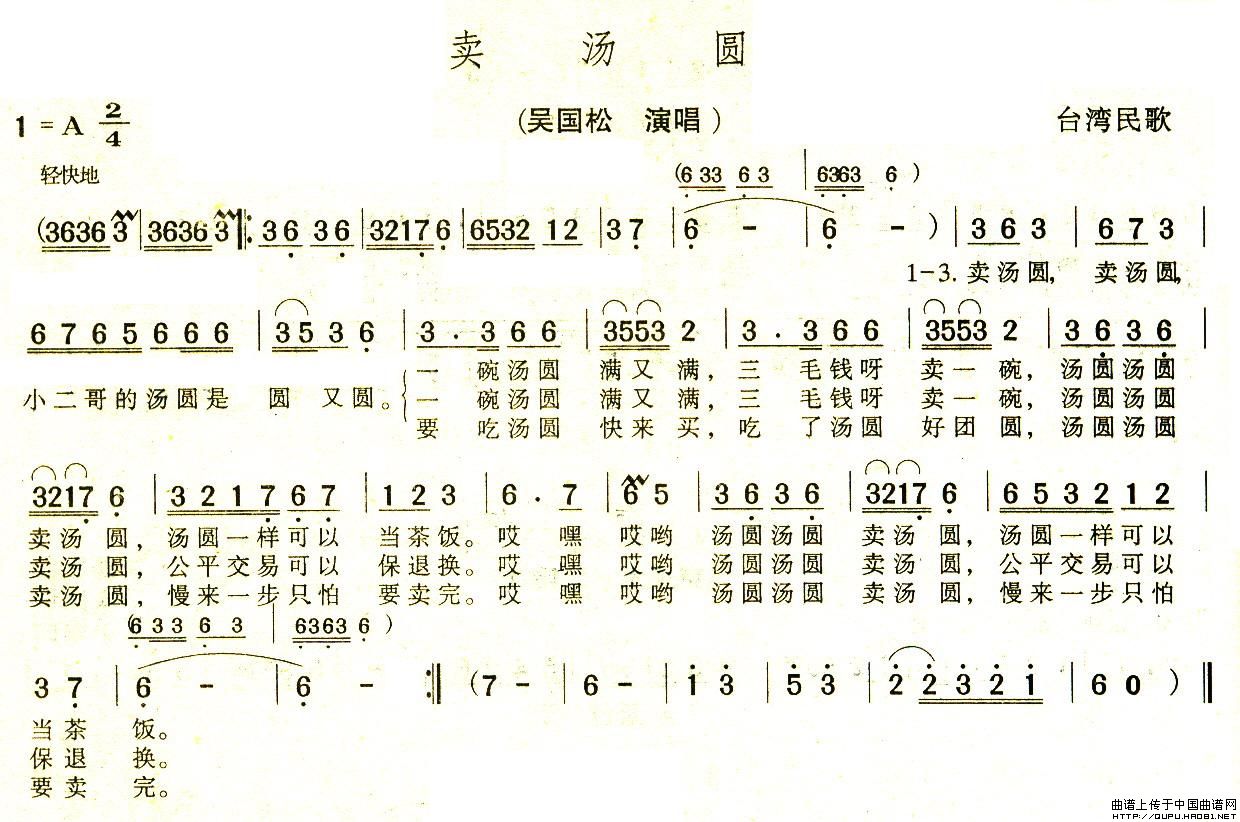 卖 汤 圆
1 = A 2/4 (吴国松 演唱) 台湾民歌
轻快地
(6 33 6 3 | 6363 6 )
(3636 3 | 3636 3 |: 36 36 | 3217 6 | 6532 12 | 3 7 | 6 - | 6 - ) | 3 6 3 | 6 7 3 |
1-3. 卖汤圆, 卖汤圆,
6765 666 | 3536 | 3 . 3 6 6 | 3553 2 | 3 . 3 6 6 | 3553 2 | 3636 |
小二哥的汤圆是 圆 又圆。 一 碗汤圆 满又满, 三 毛钱呀 卖一碗, 汤圆汤圆
一 碗汤圆 满又满, 三 毛钱呀 卖一碗, 汤圆汤圆
要 吃汤圆 快来买, 吃 了汤圆 好团圆, 汤圆汤圆
3217 6 | 3217 67 | 1 2 3 | 6 . 7 | 6 5 | 3636 | 3217 6 | 6532 12 |
卖汤 圆, 汤圆一样可以 当茶饭。哎 嘿 哎哟 汤圆汤圆 卖汤 圆, 汤圆一样可以
卖汤 圆, 公平交易可以 保退换。哎 嘿 哎哟 汤圆汤圆 卖汤 圆, 公平交易可以
卖汤 圆, 慢来一步只怕 要卖完。哎 嘿 哎哟 汤圆汤圆 卖汤 圆, 慢来一步只怕
(6 33 6 3 | 6363 6 )
3 7 | 6 - | 6 - :| (7 - | 6 - | 1 3 | 5 3 | 2 2321 | 6 0 ) ||
当茶 饭。
保退 换。
要卖 完。
曲谱上传于中国曲谱网
HTTP://QUPU.HAO81.NET